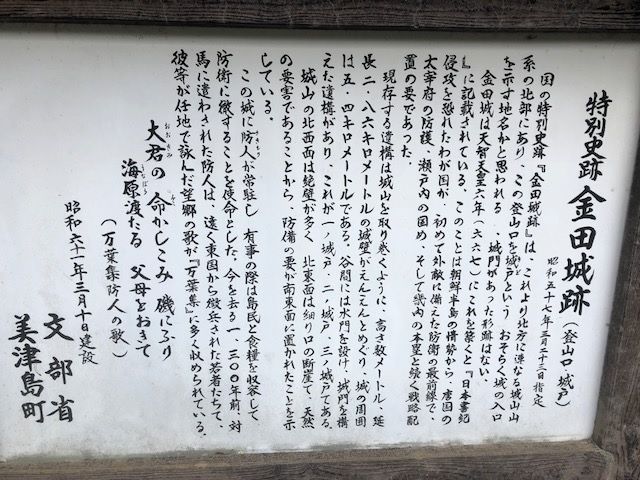 特別史跡 金田城跡(登山口 城戸)
昭和五十七年三月二十三日指定
国の特別史跡『金田城跡』は、これより北方に連なる城山山
系の北部にあり、この登山口を城戸という。おそらく城の入口
を示す地名かと思われる。城門があった形跡はない。
金田城は天智天皇六年(六六七)にこれを築くと『日本書紀
』に記載されている。このことは朝鮮半島の情勢から、唐国の
侵攻を恐れたわが国が、初めて外敵に備えた防衛の最前線で、
太宰府の防護、瀬戸内の固め、そして畿内の本望と続く戦略配
置の要であった。
現存する遺構は城山を取り巻くように、高さ数メートル、延
長二・八六キロメートルの城壁がえんえんとめぐり、城の周囲
は五・四キロメートルである。谷間には水門を設け、城門を構
えた遺構があり、これが一ノ城戸、二ノ城戸、三ノ城戸である。
城山の北西面は絶壁が多く、北東面は細り口の断崖で、天然
の要害であることから、防備の要が南東面に置かれたことを示
している。
この城に防人が常駐し、有事の際は島民と食糧を収容して
防衛に徹することを使命とした。今を去る一、三〇〇年前、対
馬に遣わされた防人は、遠く東国から徴兵された若者たちで、
彼等が任地で詠んだ望郷の歌が『万葉集』に多く収められている。
大君の 命かしこみ 磯にふり
海原渡たる 父母をおきて
(万葉集防人の歌)
昭和六十一年三月十日建設
文部省
美津島町